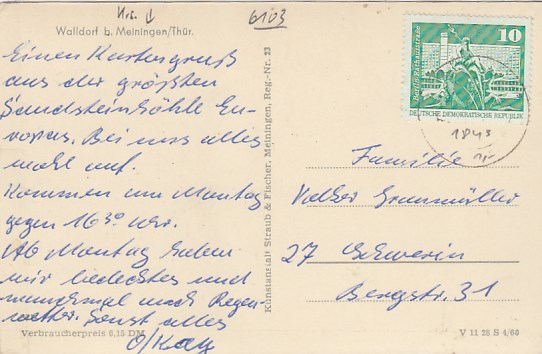 6103
Walldorf b. Meiningen/Thür.
Einen Kartengruß
aus der größten
Sandsteinhöhle Eu-
ropas. Bei uns alles
wohl auf.
Kommen am Montag
gegen 16³⁰ Uhr.
Ab Montag haben
wir bedecktes und
manchmal auch Regen-
wetter. Sonst alles
o/Kay
Verbraucherpreis 0,15 DM
Kunstanstalt Straub & Fischer, Meiningen, Reg.-Nr. 23
10
Berlin, Rathausstraße
DEUTSCHE DEMOKRATISCHE REPUBLIK
1843
Familie
Volker
27 Schwerin
Bergstr. 31
V 11 28 S 4/60